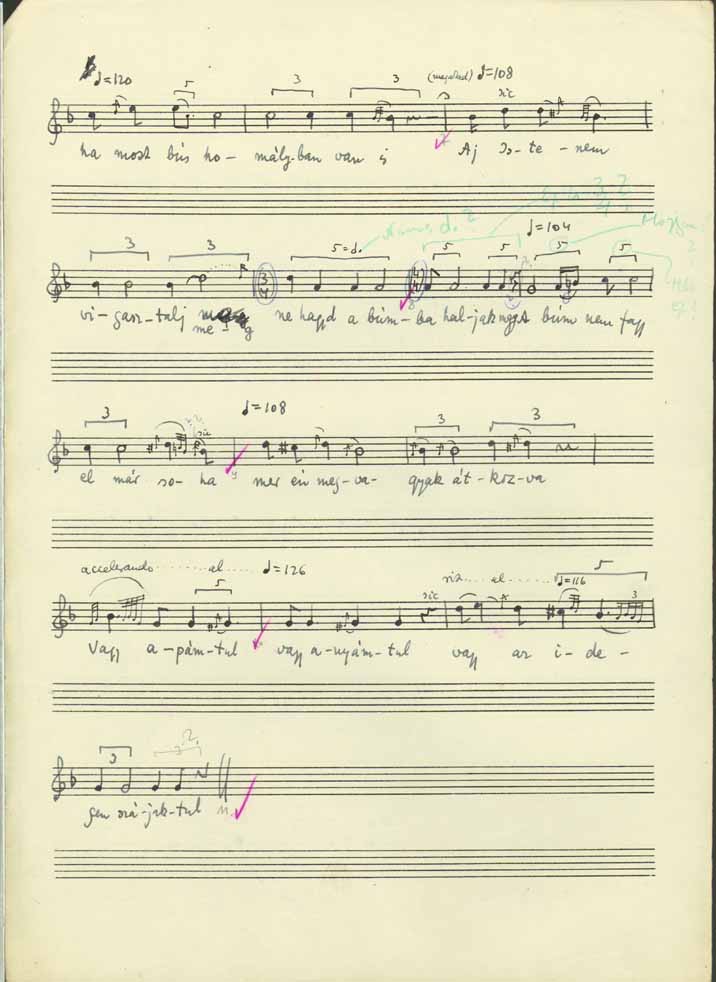 ♩=120 5 3 3 ♩=108
sic
ha most bús ho- mály-ban van is Aj Is-te-nem
3 3 5=d. 5 5 ♩=104 5 5
3/4
vi-gasz-talj
me-eg ne hagyd a búm-ba hal-jak búm nem fagy
3 ♩=108 3 3
sic
el már so-ha mer én meg-va-gyak át-koz-va
accelerando al ♩=126 al ♩=116 5
sic 3
Vagy a-pám-tul vagy a-nyám-tul vagy az i-de-
3 3 ?
gen szá-jak-tul